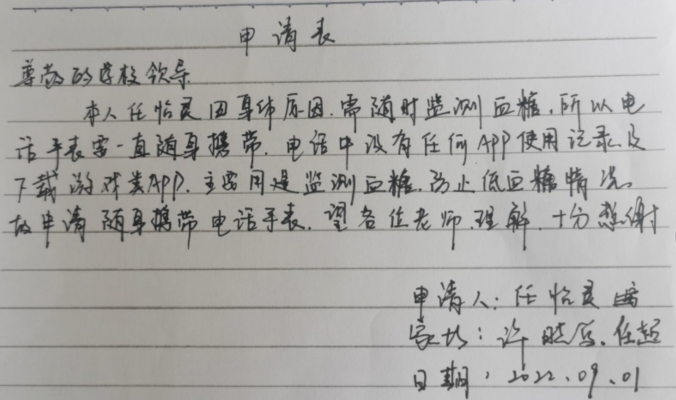 申请表
尊敬的学校领导
本人任怡灵因身体原因.需随时监测血糖.所以电
话手表需一直随身携带.电话中没有任何APP使用记录及
下载游戏类APP.主要用是监测血糖.防止低血糖情况.
故申请随身携带电话手表.望各位老师.理解.十分感谢
申请人:任怡灵
家长:许 任超
日期:2022.09.01